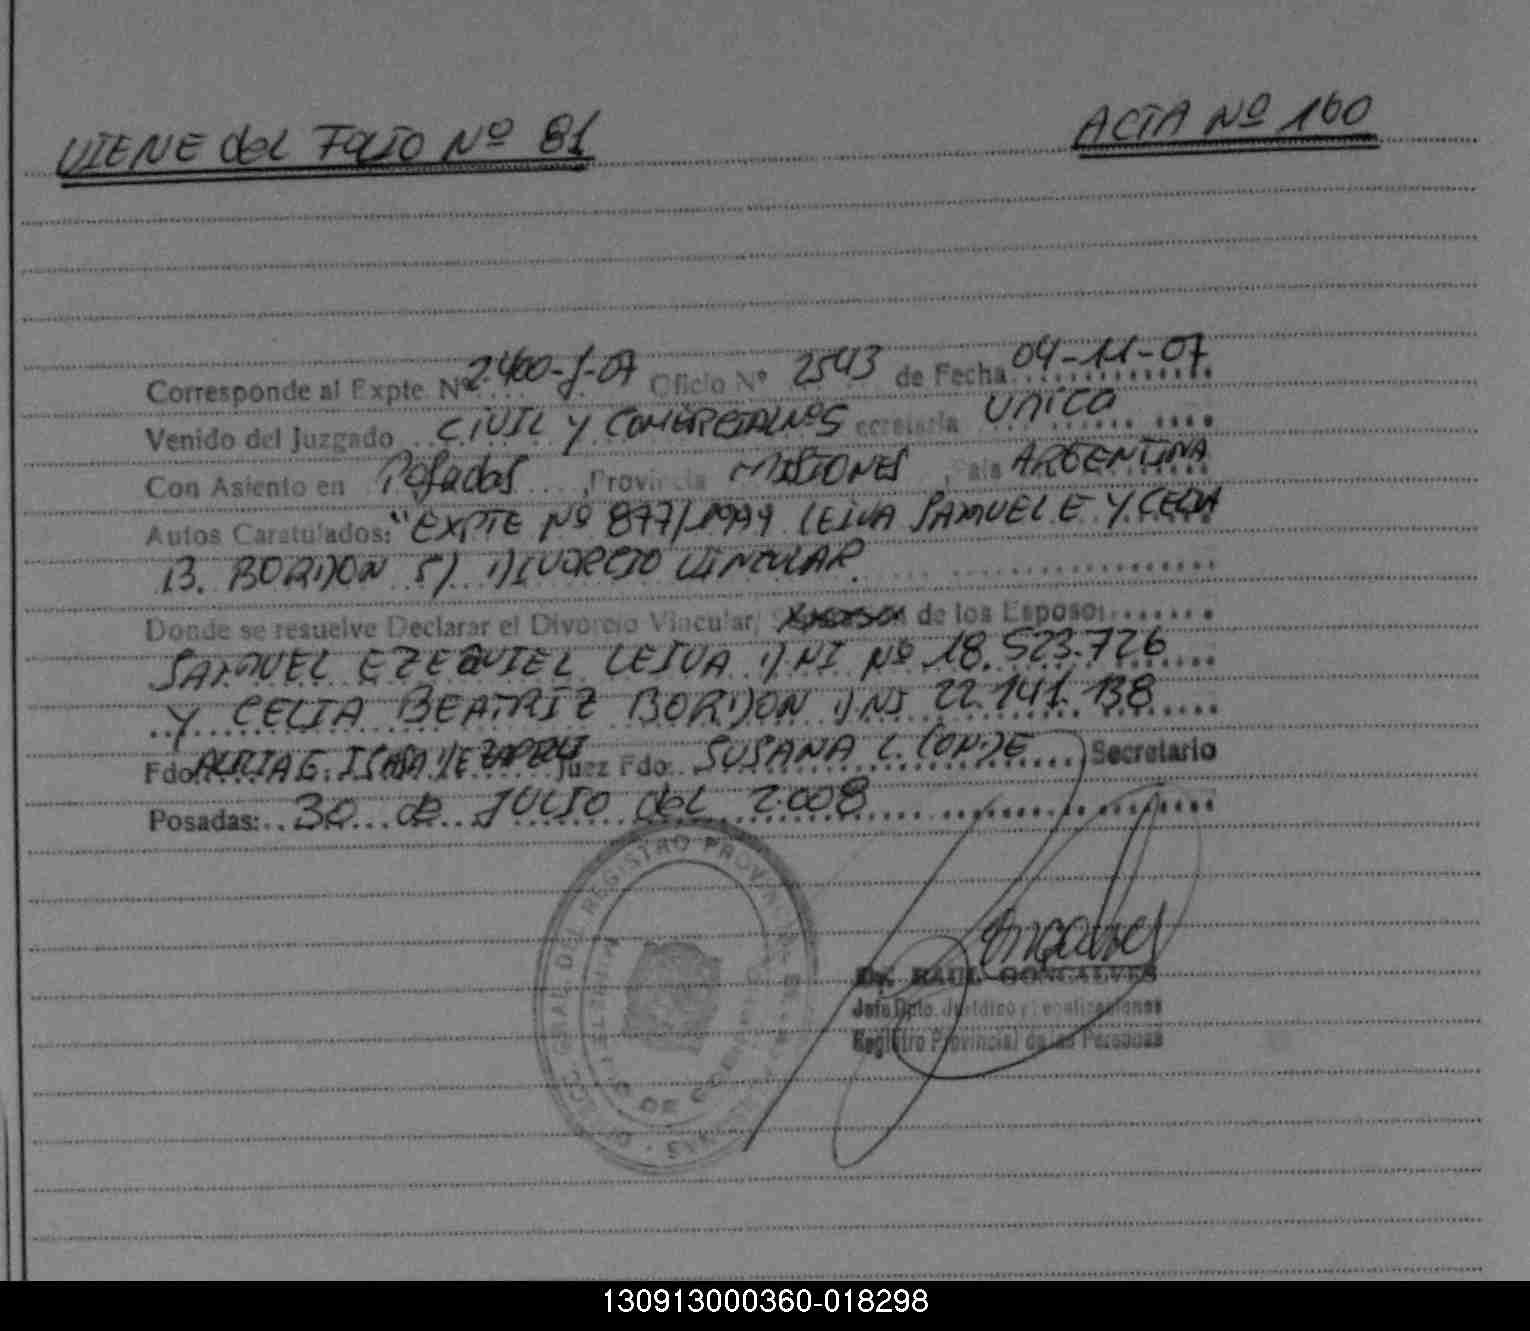 VIENE del FOLIO Nº 81
ACTA Nº 160
Corresponde al Expte. Nº 2.400-J-07 Oficio Nº 2543 de Fecha 04-11-07
Venido del Juzgado CIVIL Y COMERCIAL Nº5 Secretaria UNICA
Con Asiento en Posadas, Provincia MISIONES, Pais ARGENTINA
Autos Caratulados: "EXPTE Nº 877/1999 LEIVA SAMUEL E Y CELIA
B. BORDON S/ DIVORCIO VINCULAR.
Donde se resuelve Declarar el Divorcio Vincular, de los Esposos
SAMUEL EZEQUIEL LEIVA DNI Nº 18.523.726
Y CELIA BEATRIZ BORDON DNI 22.141.138
Fdo. Juez Fdo: SUSANA L. CONDE Secretario
Posadas: 30 de JULIO del 2.008
DIRECC. GRAL. DEL REGISTRO PROVINCIAL DE LAS PERSONAS
MINISTERIO DE GOBIERNO
Dr. RAUL GONCALVES
Jefe Dpto. Jurídico y
Registro Provincial de las Personas
130913000360-018298